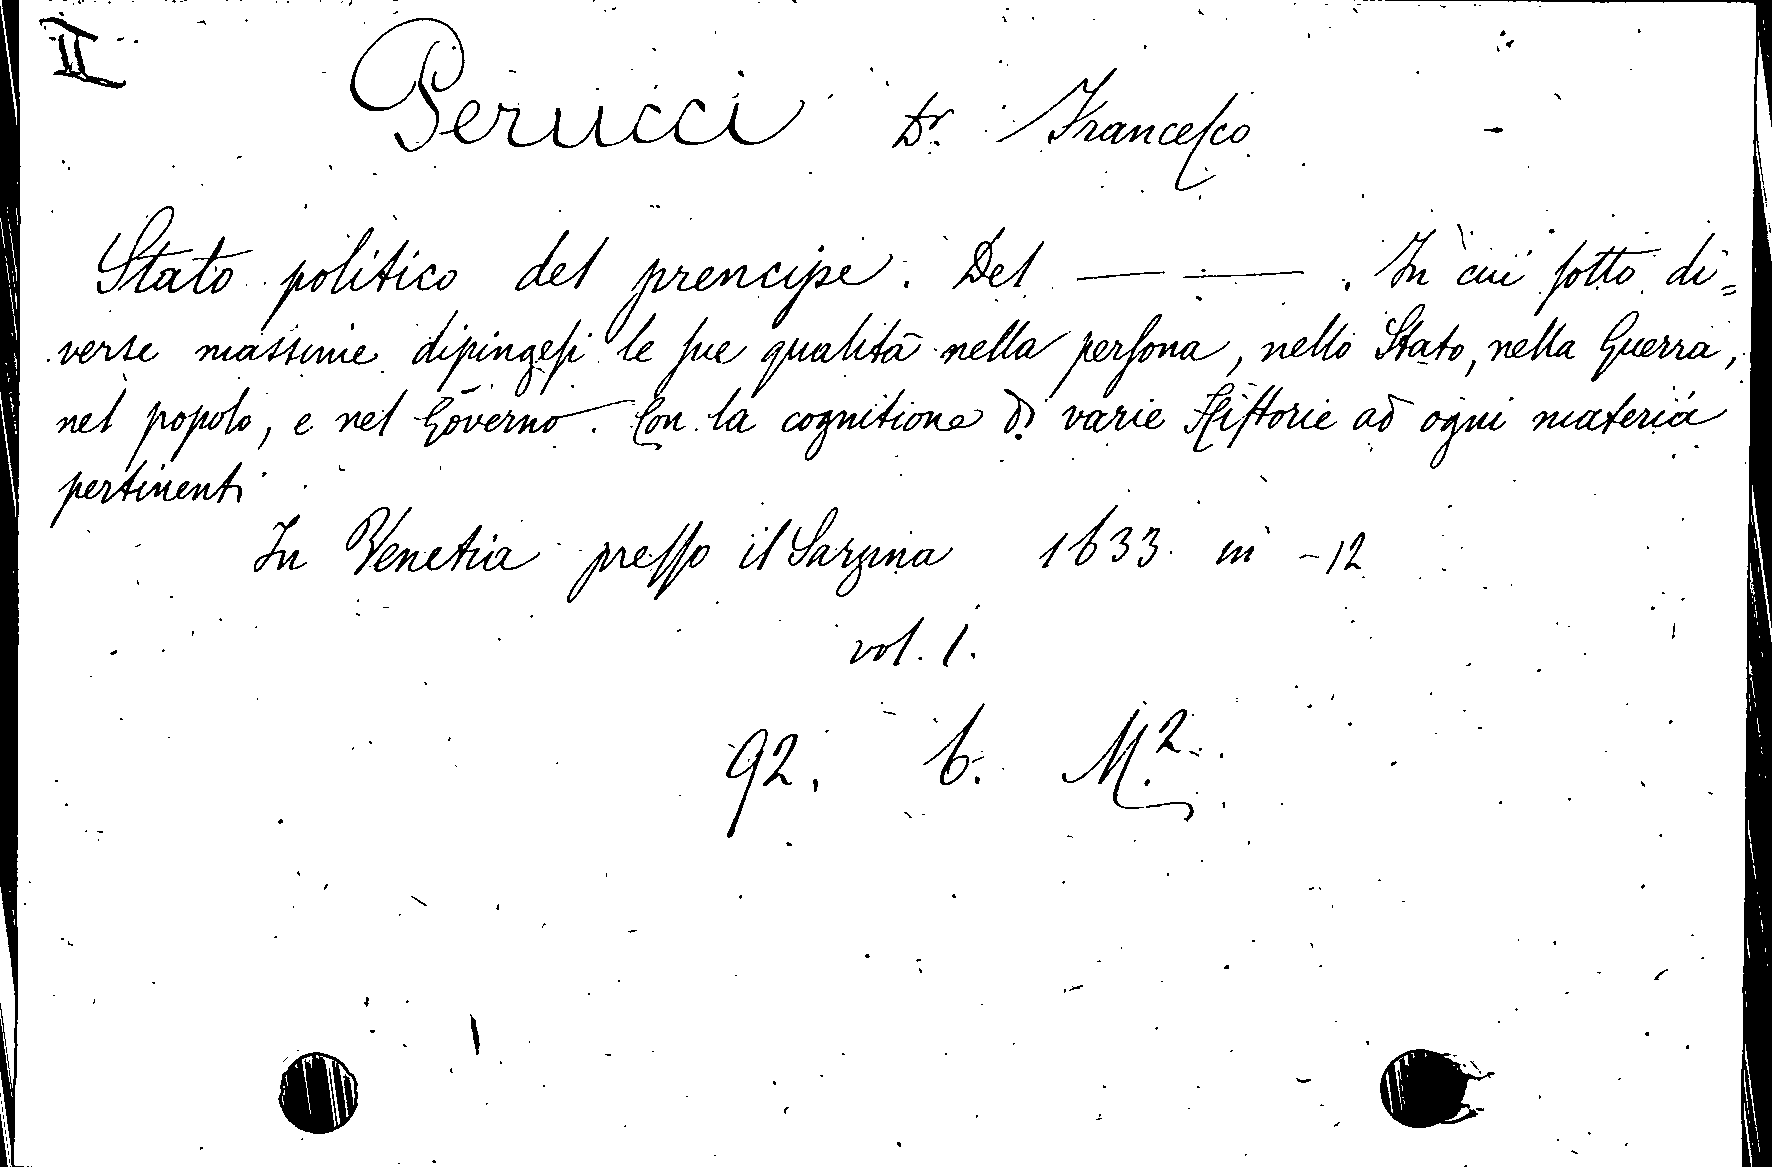 II
Perucci Dr. Franceſco
Stato politico del prencipe. Del — — . In cui ſotto di=
verse massime dipingeſi le ſue qualità nella perſona, nello Stato, nella Guerra,
nel popolo, e nel Governo. Con la cognitione di varie Hiſtorie ad ogni materia
pertinenti
In Venetia preſſo il Sarzina 1633 in -12
vol. 1.
92. b. M.2